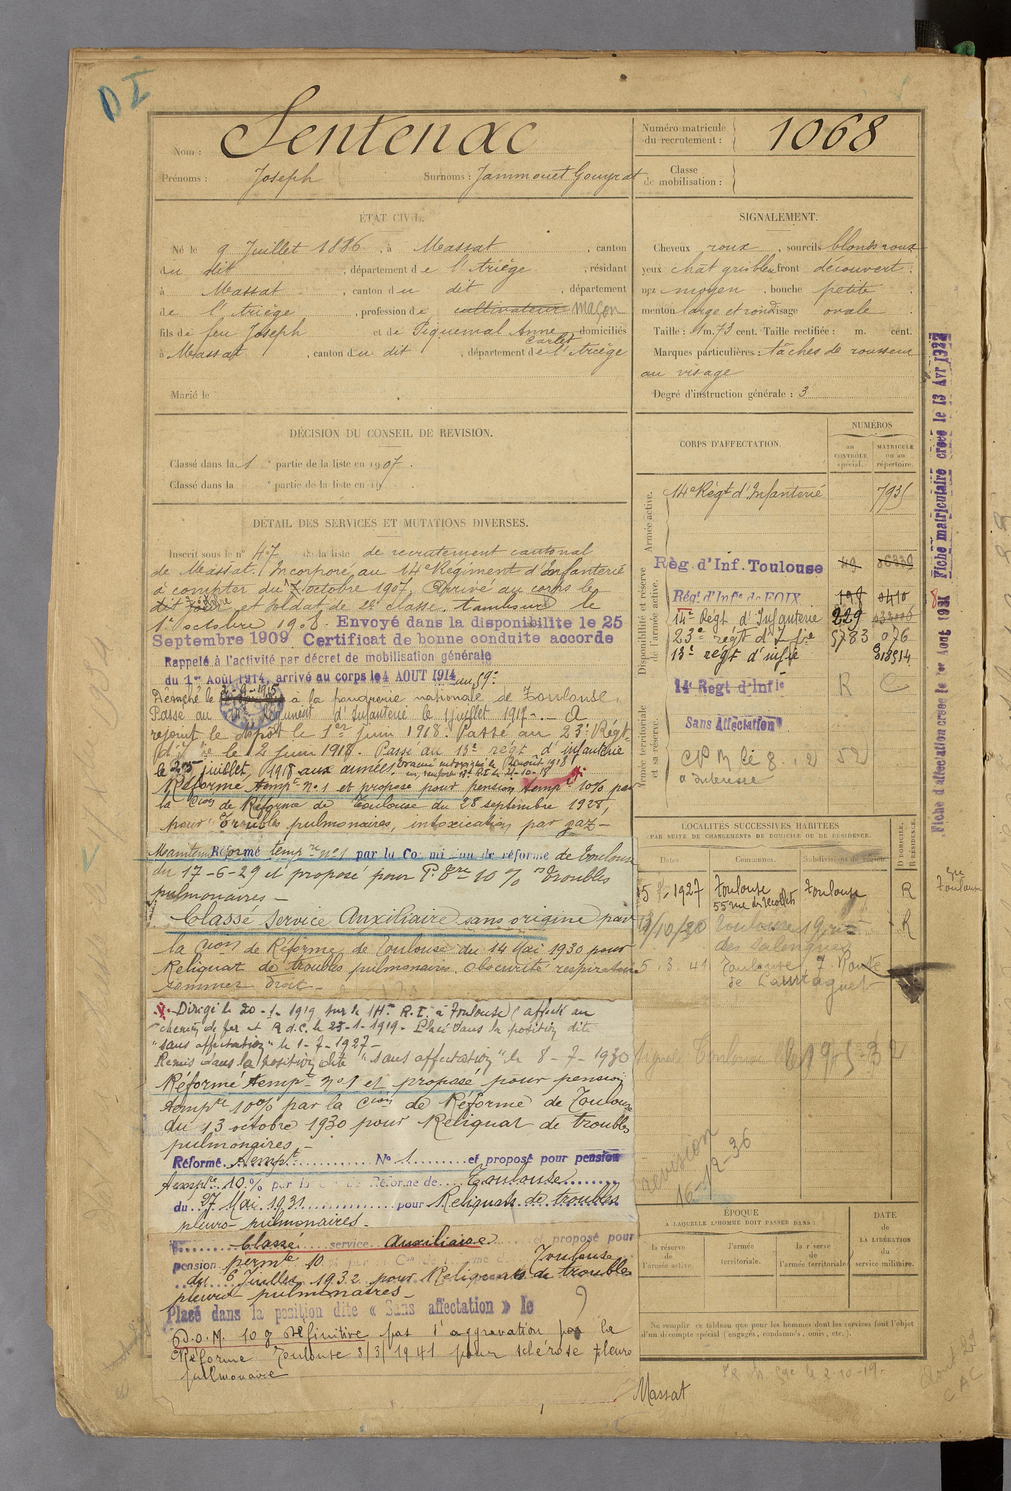 D I
Nom : Sentenac
Prénoms : Joseph Surnoms : Jammouet Gouyrat
Numéro matricule du recrutement : 1068
Classe de mobilisation :
ÉTAT CIVIL.
Né le 9 Juillet 1886, à Massat, canton
du dit, département de l'Ariège, résidant
à Massat, canton du dit, département
de l'Ariège, profession de cultivateur maçon
fils de feu Joseph et de Piquemal Anne Carlet, domiciliés
à Massat, canton du dit, département de l'Ariège
Marié le
SIGNALEMENT.
Cheveux roux, sourcils blonds roux
yeux front découvert
nez moyen, bouche petite
menton large et rond visage ovale
Taille : 1 m. 73 cent. Taille rectifiée : m. cent.
Marques particulières : tâches de rousseur
au visage
Degré d'instruction générale : 3
DÉCISION DU CONSEIL DE REVISION.
Classé dans la 1 partie de la liste en 1907.
Classé dans la partie de la liste en 19
DÉTAIL DES SERVICES ET MUTATIONS DIVERSES.
Inscrit sous le n° 47 de la liste de recrutement cantonal
de Massat. Incorporé au 14e Régiment d'Infanterie
à compter du 7 octobre 1907, Arrivé au corps le
dit jour et soldat de 2e classe. tambour le
1er octobre 1908. Envoyé dans la disponibilité le 25
Septembre 1909 Certificat de bonne conduite accordé
Rappelé à l'activité par décret de mobilisation générale
du 1er Août 1914, arrivé au corps le 4 AOUT 1914 au 59e
Détaché le à la poudrerie nationale de Toulouse
Passé au Régiment d'Infanterie le 1 juillet 1917. — A
rejoint le dépôt le 1er Juin 1918. Passé au 23e Régt
d'Ie le 12 Juin 1918. Passé au 13e régt d'infanterie
le 25 juillet 1918 aux armées.
Réformé tempre n° 1 et proposé pour pension tempre 10% par
la Cion de Réforme de Toulouse du 28 septembre 1928,
pour Troubles pulmonaires, intoxication par gaz —
Maintenu Réformé tempre n° 1 par la Commission de réforme de Toulouse
du 17-6-29 et proposé pour P. Tre 10 % Troubles
pulmonaires —
Classé Service Auxiliaire sans origine par
la Cion de Réforme de Toulouse du 14 Mai 1930 pour
Reliquat de troubles pulmonaires. Obscurité respiratoire
sommet droit —
Dirigé le 20-1-1919 sur le 14e R.I. à Toulouse (affecté au
chemin de fer et R.d.C. le 23-1-1919 — Placé dans la position dite
"sans affectation" le 1-7-1927 —
Remis dans la position dite "sans affectation" le 8-7-1930
Réformé tempre n° 1 et proposé pour pension
tempre 10% par la Cion de Réforme de Toulouse
du 13 octobre 1930 pour Reliquat de troubles
pulmonaires —
Réformé tempre N° 1 et proposé pour pension
tempre 10 % par la Cion de Réforme de Toulouse
du 27 Mai 1931 pour Reliquats de troubles
pleuro-pulmonaires —
Classé service Auxiliaire et proposé pour
pension perm 10 Toulouse
du 6 Juillet 1932 pour Reliquats de troubles
pleuro pulmonaires —
Placé dans la position dite « Sans affectation » le
P.D.M. 10 % Définitive pas d'aggravation par la
Réforme Toulouse 3/3/1941 pour sclérose pleuro
pulmonaire
CORPS D'AFFECTATION.
NUMÉROS
AU CONTRÔLE spécial.
MATRICULE OU AU répertoire.
Armée active.
14e Régt d'Infanterie 7935
Disponibilité et réserve de l'armée active.
Rég. d'Inf. Toulouse
Régt d'Infie de FOIX 198 0410
14e Régt d'Infanterie 229
23e régt d'Infie 5783 076
13e régt d'infie
Armée territoriale et sa réserve.
14e Régt d'Infie R C
Sans Affectation
52
LOCALITÉS SUCCESSIVES HABITÉES
PAR SUITE DE CHANGEMENTS DE DOMICILE OU DE RÉSIDENCE.
Dates. Communes. Subdivisions de région. D DOMICILE. R RÉSIDENCE.
1927 Toulouse 55 rue des Récollets Toulouse R
13/10/30 Toulouse 19 rue des Salenques R
5.3.41 Toulouse 7 Route de Launaguet
Toulouse 19-5-32
revision
16-12-36
ÉPOQUE
À LAQUELLE L'HOMME DOIT PASSER DANS :
la réserve de l'armée active.
l'armée territoriale.
la réserve de l'armée territoriale.
DATE de LA LIBÉRATION du service militaire.
Ne remplir ce tableau que pour les hommes dont les services font l'objet
d'un décompte spécial (engagés, condamnés, omis, etc.).
Massat
Fiche d'affectation créée le 1er Aout 1931 Fiche matriculaire créée le 13 Avr 1932